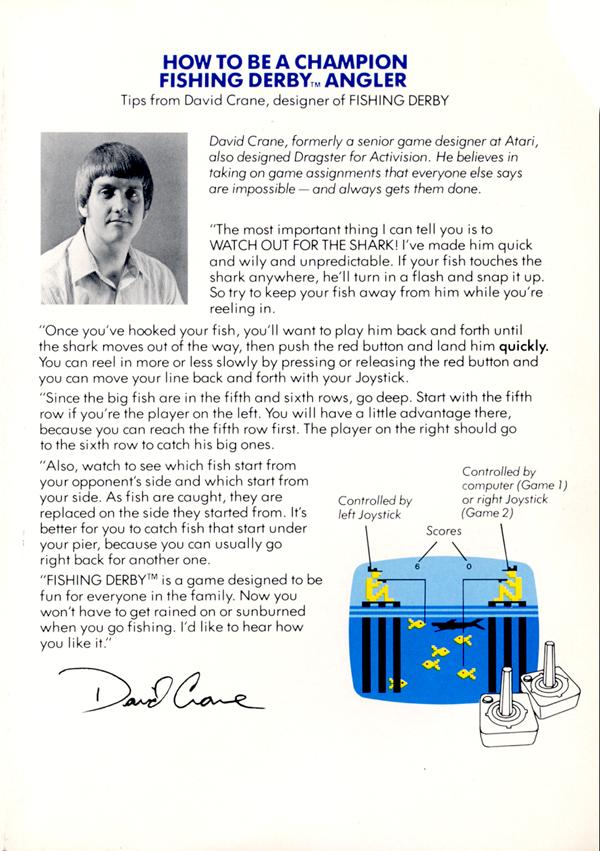 HOW TO BE A CHAMPION
FISHING DERBY™ ANGLER
Tips from David Crane, designer of FISHING DERBY
David Crane, formerly a senior game designer at Atari,
also designed Dragster for Activision. He believes in
taking on game assignments that everyone else says
are impossible — and always gets them done.
"The most important thing I can tell you is to
WATCH OUT FOR THE SHARK! I've made him quick
and wily and unpredictable. If your fish touches the
shark anywhere, he'll turn in a flash and snap it up.
So try to keep your fish away from him while you're
reeling in.
"Once you've hooked your fish, you'll want to play him back and forth until
the shark moves out of the way, then push the red button and land him quickly.
You can reel in more or less slowly by pressing or releasing the red button and
you can move your line back and forth with your Joystick.
"Since the big fish are in the fifth and sixth rows, go deep. Start with the fifth
row if you're the player on the left. You will have a little advantage there,
because you can reach the fifth row first. The player on the right should go
to the sixth row to catch his big ones.
"Also, watch to see which fish start from
your opponent's side and which start from
your side. As fish are caught, they are
replaced on the side they started from. It's
better for you to catch fish that start under
your pier, because you can usually go
right back for another one.
"FISHING DERBY™ is a game designed to be
fun for everyone in the family. Now you
won't have to get rained on or sunburned
when you go fishing. I'd like to hear how
you like it."
David Crane
Controlled by
left Joystick
Scores
Controlled by
computer (Game 1)
or right Joystick
(Game 2)
6 0